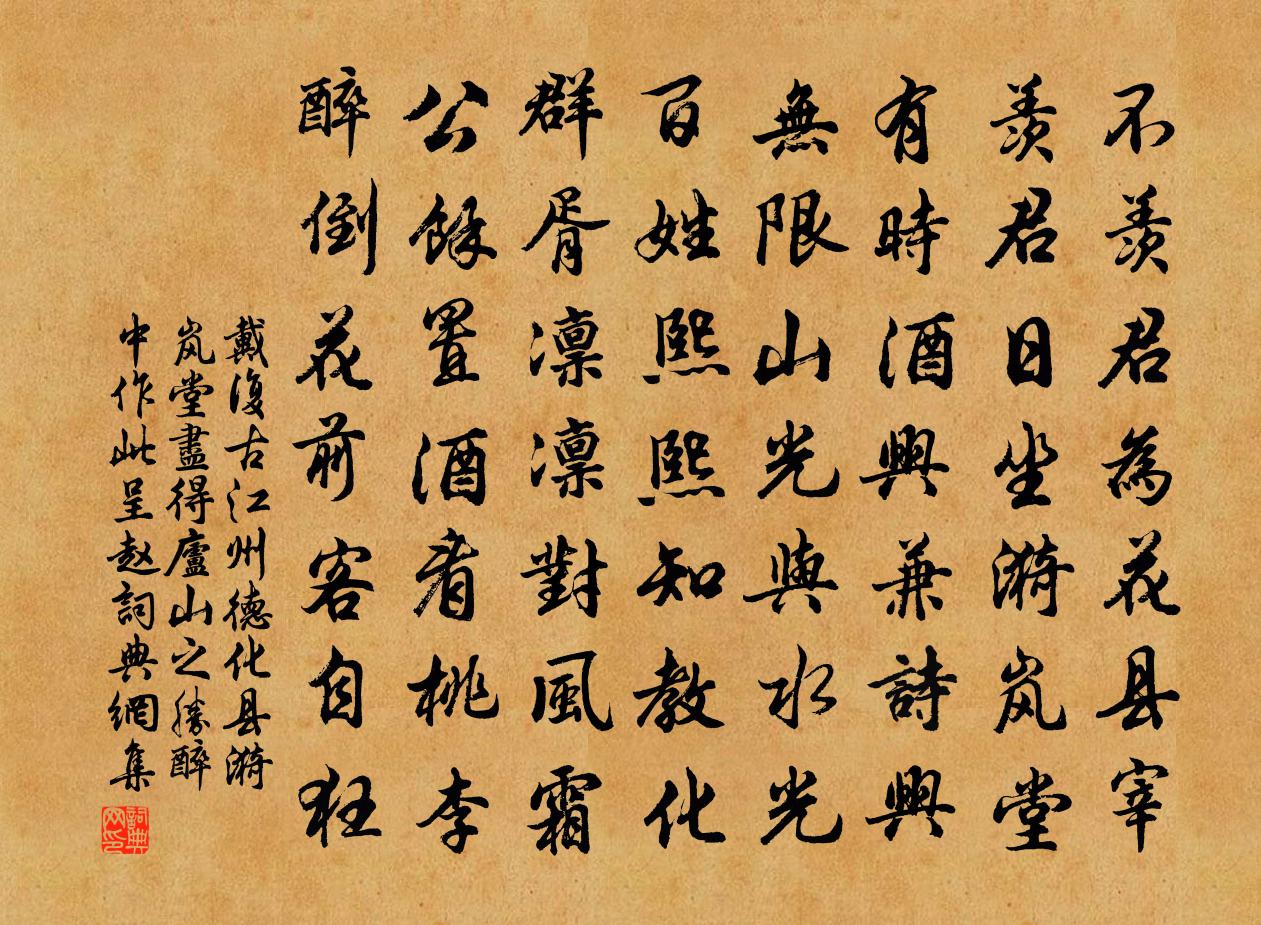 不羨君為花县宰
羨君日坐漪岚堂
有時酒興兼詩興
無限山光與水光
百姓熙熙知教化
群胥凛凛對風霜
公餘置酒看桃李
醉倒花前客自狂
戴復古江州德化县漪
岚堂盡得廬山之勝醉
中作此呈赵詞典網集
詞典網印